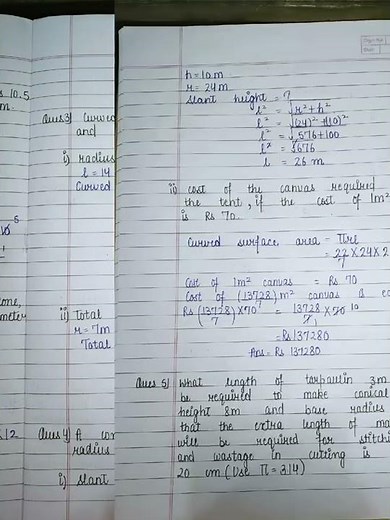 s 10.5
m.
Ques3) Curved
and
i) radius
l = 14
Curved
cone,
meter
ii) Total
r = 7m
Total
Ques4) A con
radius
i) slant
h = 10 m
r = 24 m
slant height = ?
l² = √r² + h²
l² = √(24)² + (10)²
l² = √576+100
l² = √676
l = 26 m
ii) cost of the canvas required
the tent, if the cost of 1m²
is Rs 70.
Curved surface area = πrl
= 22/7 × 24 × 2
Cost of 1m² canvas = Rs 70
Cost of (13728/7) m² canvas
Rs (13728/7) × 70 = 13728/7 × 70 10
= Rs 137280
Ans = Rs 137280
Ques 5) What length of tarpaulin 3m
be required to make conical
height 8m and base radius
that the extra length of ma
will be required for stitchi
and wastage in cutting is
20 cm (Use π = 3.14)